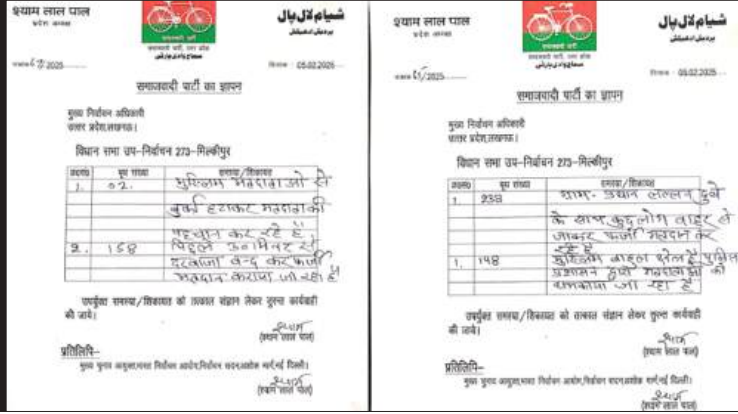 श्याम लाल पाल
प्रदेश अध्यक्ष
समाजवादी पार्टी, उत्तर प्रदेश
سماجوادی پارٹی
شیام لال پال
پردیش ادھیکش
/2025
05.02.2025
समाजवादी पार्टी का ज्ञापन
मुख्य निर्वाचन अधिकारी
उत्तर प्रदेश, लखनऊ।
विधान सभा उप-निर्वाचन 273-मिल्कीपुर
क्र०सं० बूथ संख्या समस्या/शिकायत
1. 02. मुस्लिम मतदाताओं से
बुर्का हटाकर मतदाता की
पहचान कर रहे हैं
2. 158 पिछले 30 मिनट से
दरवाजा बन्द कर फर्जी
मतदान कराया जा रहा है
उपर्युक्त समस्या/शिकायत को तत्काल संज्ञान लेकर तुरन्त कार्यवाही
की जाये।
(श्याम लाल पाल)
प्रतिलिपि–
मुख्य चुनाव आयुक्त, भारत निर्वाचन आयोग, निर्वाचन सदन, अशोक मार्ग, नई दिल्ली।
(श्याम लाल पाल)
श्याम लाल पाल
प्रदेश अध्यक्ष
سماجوادی پارٹی
شیام لال پال
پردیش ادھیکش
/2025
05.02.2025
समाजवादी पार्टी का ज्ञापन
मुख्य निर्वाचन अधिकारी
उत्तर प्रदेश, लखनऊ।
विधान सभा उप-निर्वाचन 273-मिल्कीपुर
क्र०सं० बूथ संख्या समस्या/शिकायत
1. 238 ग्राम-प्रधान लल्लन दुबे
के साथ, कुछ लोग बाहर से
आकर फर्जी मतदान कर
रहे हैं
1. 148 मुस्लिम बाहुल्य पुलिस
प्रशासन द्वारा मतदाताओं को
धमकाया जा रहा है
उपर्युक्त समस्या/शिकायत को तत्काल संज्ञान लेकर तुरन्त कार्यवाही
की जाये।
(श्याम लाल पाल)
प्रतिलिपि–
मुख्य चुनाव आयुक्त, भारत निर्वाचन आयोग, निर्वाचन सदन, अशोक मार्ग, नई दिल्ली।
(श्याम लाल पाल)